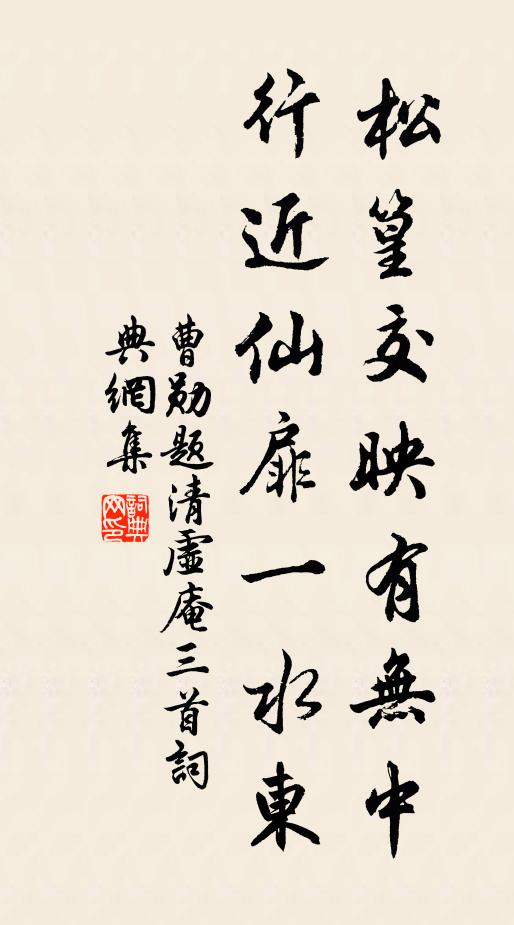 松篁交映有無中
行近仙扉一水東
曹勛題清虛庵三首詞
典網集
詞典网印